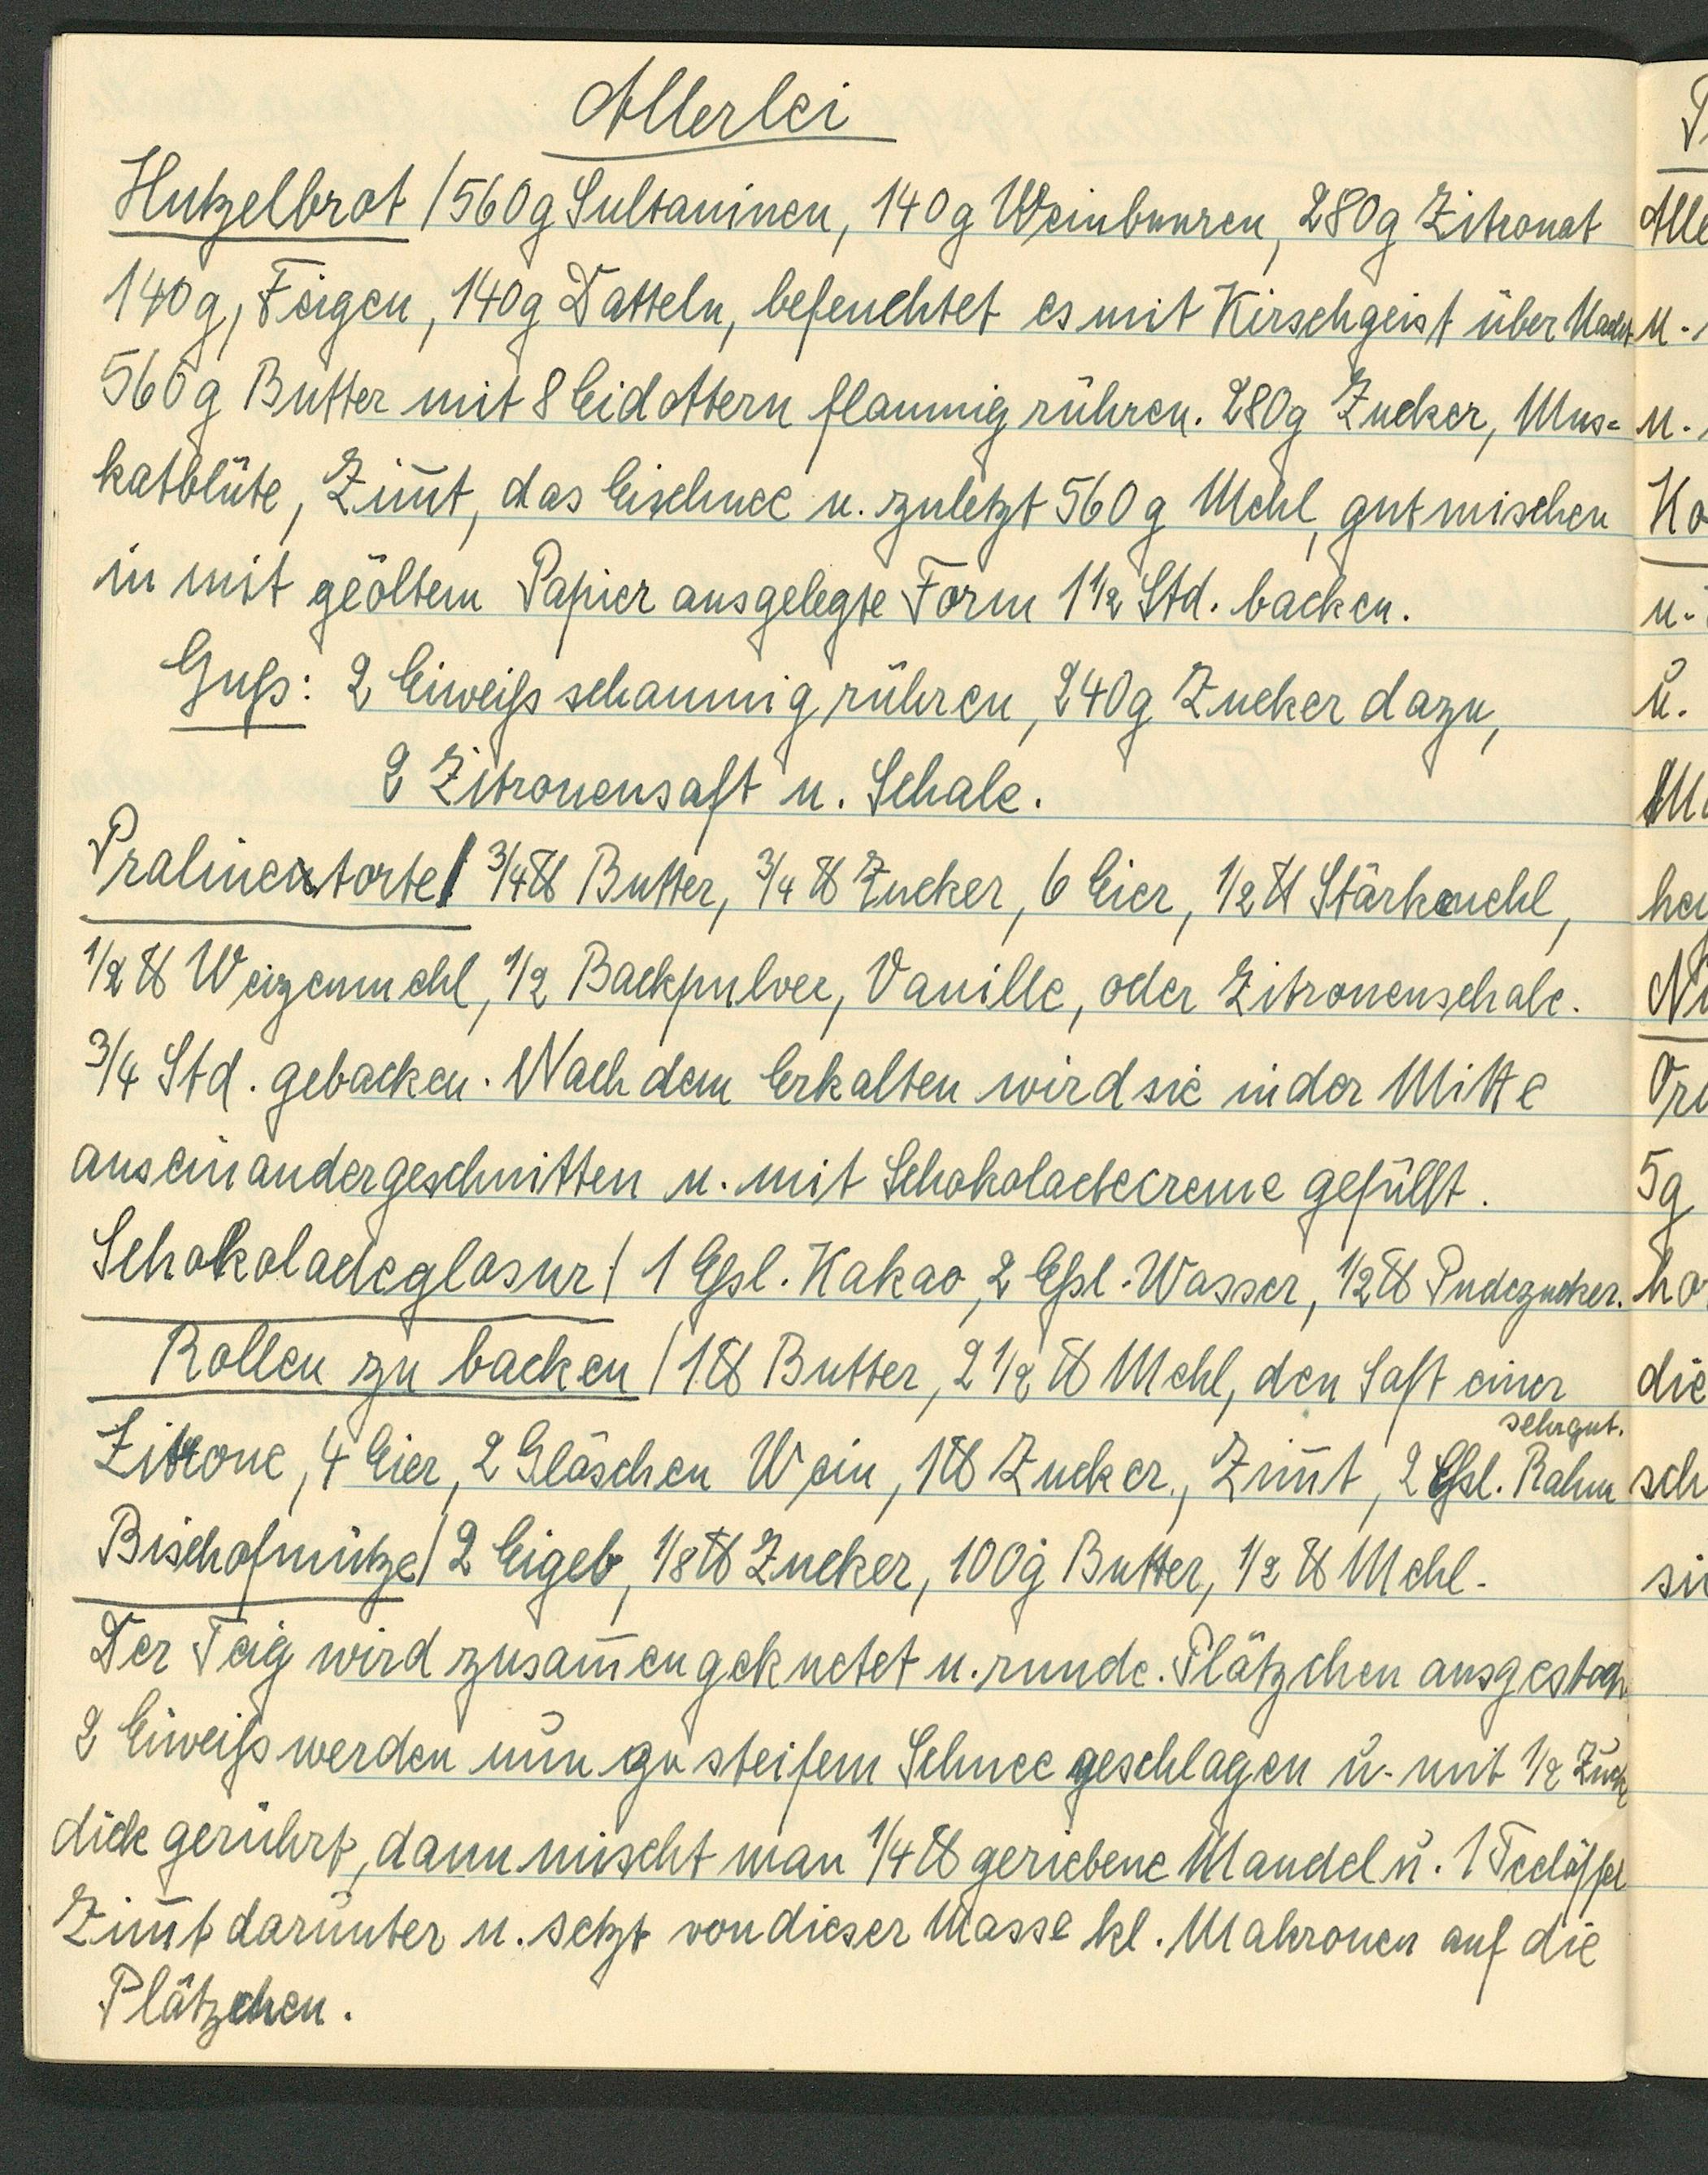 Allerlei
Hutzelbrot / 560g Sultaninen, 140g Weinbeeren, 280g Zitronat
140g, Feigen, 140g Datteln, befeuchtet es mit Kirschgeist über Nacht
560g Butter mit 8 Eidottern flaumig rühren. 280g Zucker, Mus=
katblüte, Zim̅t, das Eischnee u. zuletzt 560g Mehl, gut mischen
in mit geöltem Papier ausgelegte Form 1 1/2 Std. backen.
Guß: 2 Eiweiß schaumig rühren, 240g Zucker dazu,
2 Zitronensaft u. Schale.
Pralinentorte / 3/4 ℔ Butter, 3/4 ℔ Zucker, 6 Eier, 1/2 ℔ Stärkemehl,
1/2 ℔ Weizenmehl, 1/2 Backpulver, Vanille, oder Zitronenschale.
3/4 Std. gebacken. Nach dem Erkalten wird sie in der Mitte
auseinandergeschnitten u. mit Schokoladecreme gefüllt.
Schokoladeglasur / 1 Eßl. Kakao, 2 Eßl. Wasser, 1/2 ℔ Pudezucker.
Rollen zu backen / 1 ℔ Butter, 2 1/2 ℔ Mehl, den Saft einer
sehrgut.
Zitrone, 4 Eier, 2 Gläschen Wein, 1 ℔ Zucker, Zim̅t, 2 Eßl. Rahm
Bischofmütze / 2 Eigeb, 1/8 ℔ Zucker, 100g Butter, 1/2 ℔ Mehl.
Der Teig wird zusam̅engeknetet u. runde. Plätzchen ausgestoch
2 Eiweiß werden nun zu steifem Schnee geschlagen u. mit 1/2 Zuck
dick gerührt, dann mischt man 1/4 ℔ geriebene Mandel u. 1 Teelöffel
Zim̅t darunter u. setzt von dieser Masse kl. Makronen auf die
Plätzchen.